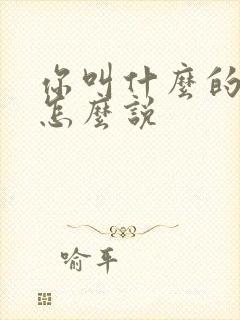 你叫什麼的
怎麼說
喻平